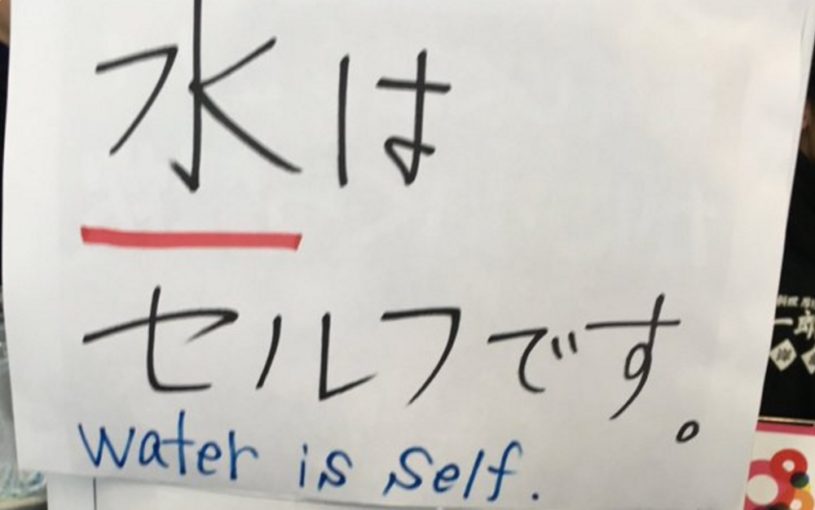 水は
セルフです。
water is self.